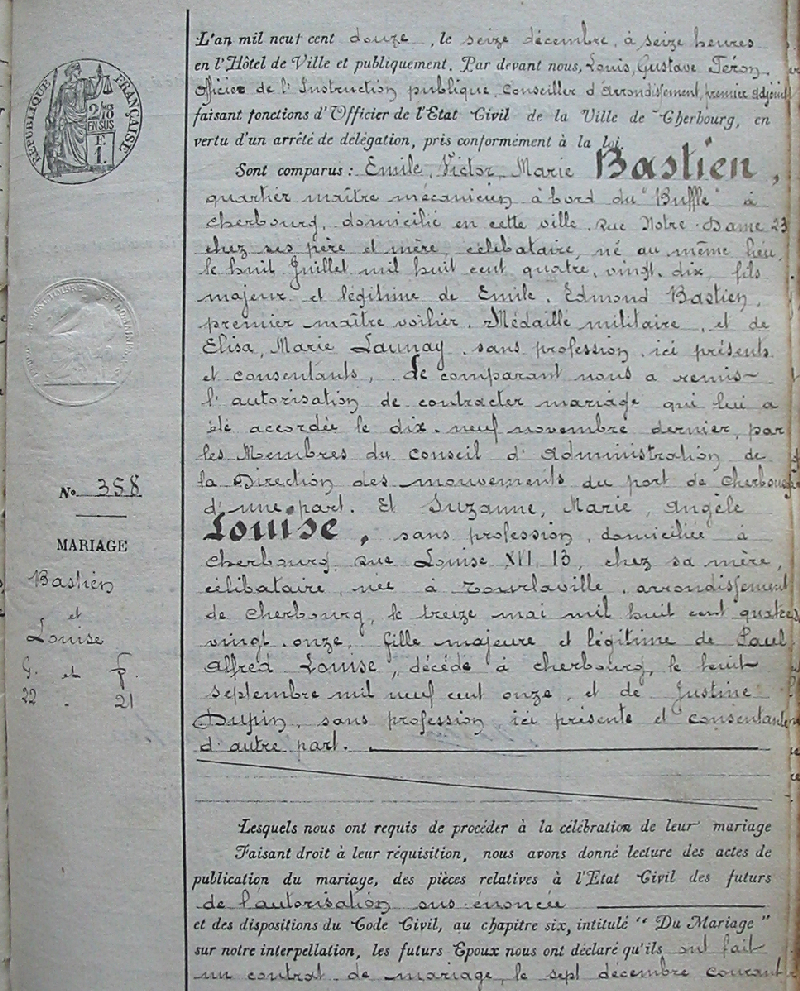 RÉPUBLIQUE FRANÇAISE
2/10
EN SUS
F.
1.
No. 358
MARIAGE
Bastien
et
Louise
G. et F.
22 - 21
L'an mil neuf cent douze, le seize décembre, à seize heures
en l'Hôtel de Ville et publiquement. Par devant nous, Louis, Gustave Téron,
Officier de l'Instruction publique, Conseiller d'arrondissement, premier adjoint
faisant fonctions d'Officier de l'Etat Civil de la Ville de Cherbourg, en
vertu d'un arrêté de délégation, pris conformément à la loi
Sont comparus : Emile, Victor, Marie Bastien,
quartier maître mécanicien à bord du "Buffle" à
Cherbourg, domicilié en cette ville, rue Notre-Dame 23
chez ses père et mère, célibataire, né au même lieu,
le huit Juillet mil huit cent quatre-vingt-dix fils
majeur et légitime de Emile, Edmond Bastien,
premier maître voilier, Médaille militaire, et de
Elisa, Marie Launay, sans profession, ici présents
et consentants, Le comparant nous a remis
l'autorisation de contracter mariage qui lui a
été accordée le dix-neuf novembre dernier, par
les Membres du conseil d'administration de
la Direction des mouvements du port de Cherbourg
d'une part. Et Suzanne, Marie, Angèle
Louise, sans profession, domiciliée à
Cherbourg rue Louis XVI 13, chez sa mère,
célibataire née à Tourlaville, arrondissement
de Cherbourg, le treize mai mil huit cent quatre
vingt-onze, fille majeure et légitime de Paul
Alfred Louise, décédé à Cherbourg, le huit
septembre mil neuf cent onze, et de Justine
Dupin, sans profession, ici présente et consentante
d'autre part.
Lesquels nous ont requis de procéder à la célébration de leur mariage
Faisant droit à leur réquisition, nous avons donné lecture des actes de
publication du mariage, des pièces relatives à l'Etat Civil des futurs
de l'autorisation sus énoncée
et des dispositions du Code Civil, au chapitre six, intitulé " Du Mariage "
sur notre interpellation, les futurs Epoux nous ont déclaré qu'ils ont fait
un contrat de mariage, le sept décembre courant